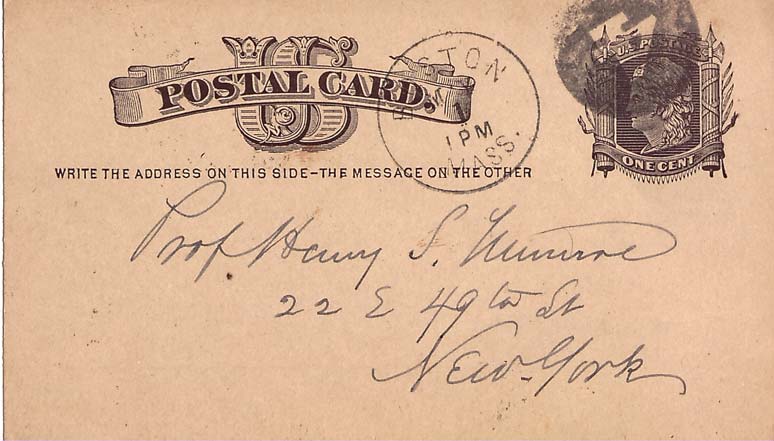 US
POSTAL CARD.
U.S. POSTAGE
ONE CENT
BOSTON
1
1 PM
MASS.
WRITE THE ADDRESS ON THIS SIDE-THE MESSAGE ON THE OTHER
Prof Henry S. Munroe
22 E 49th St
New-York